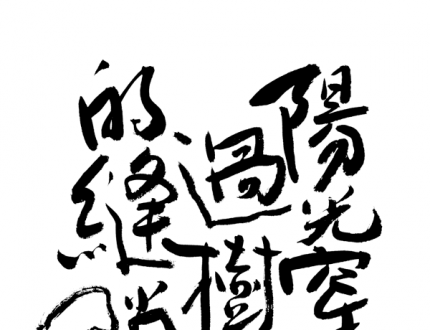 陽光穿
過樹
的縫隙